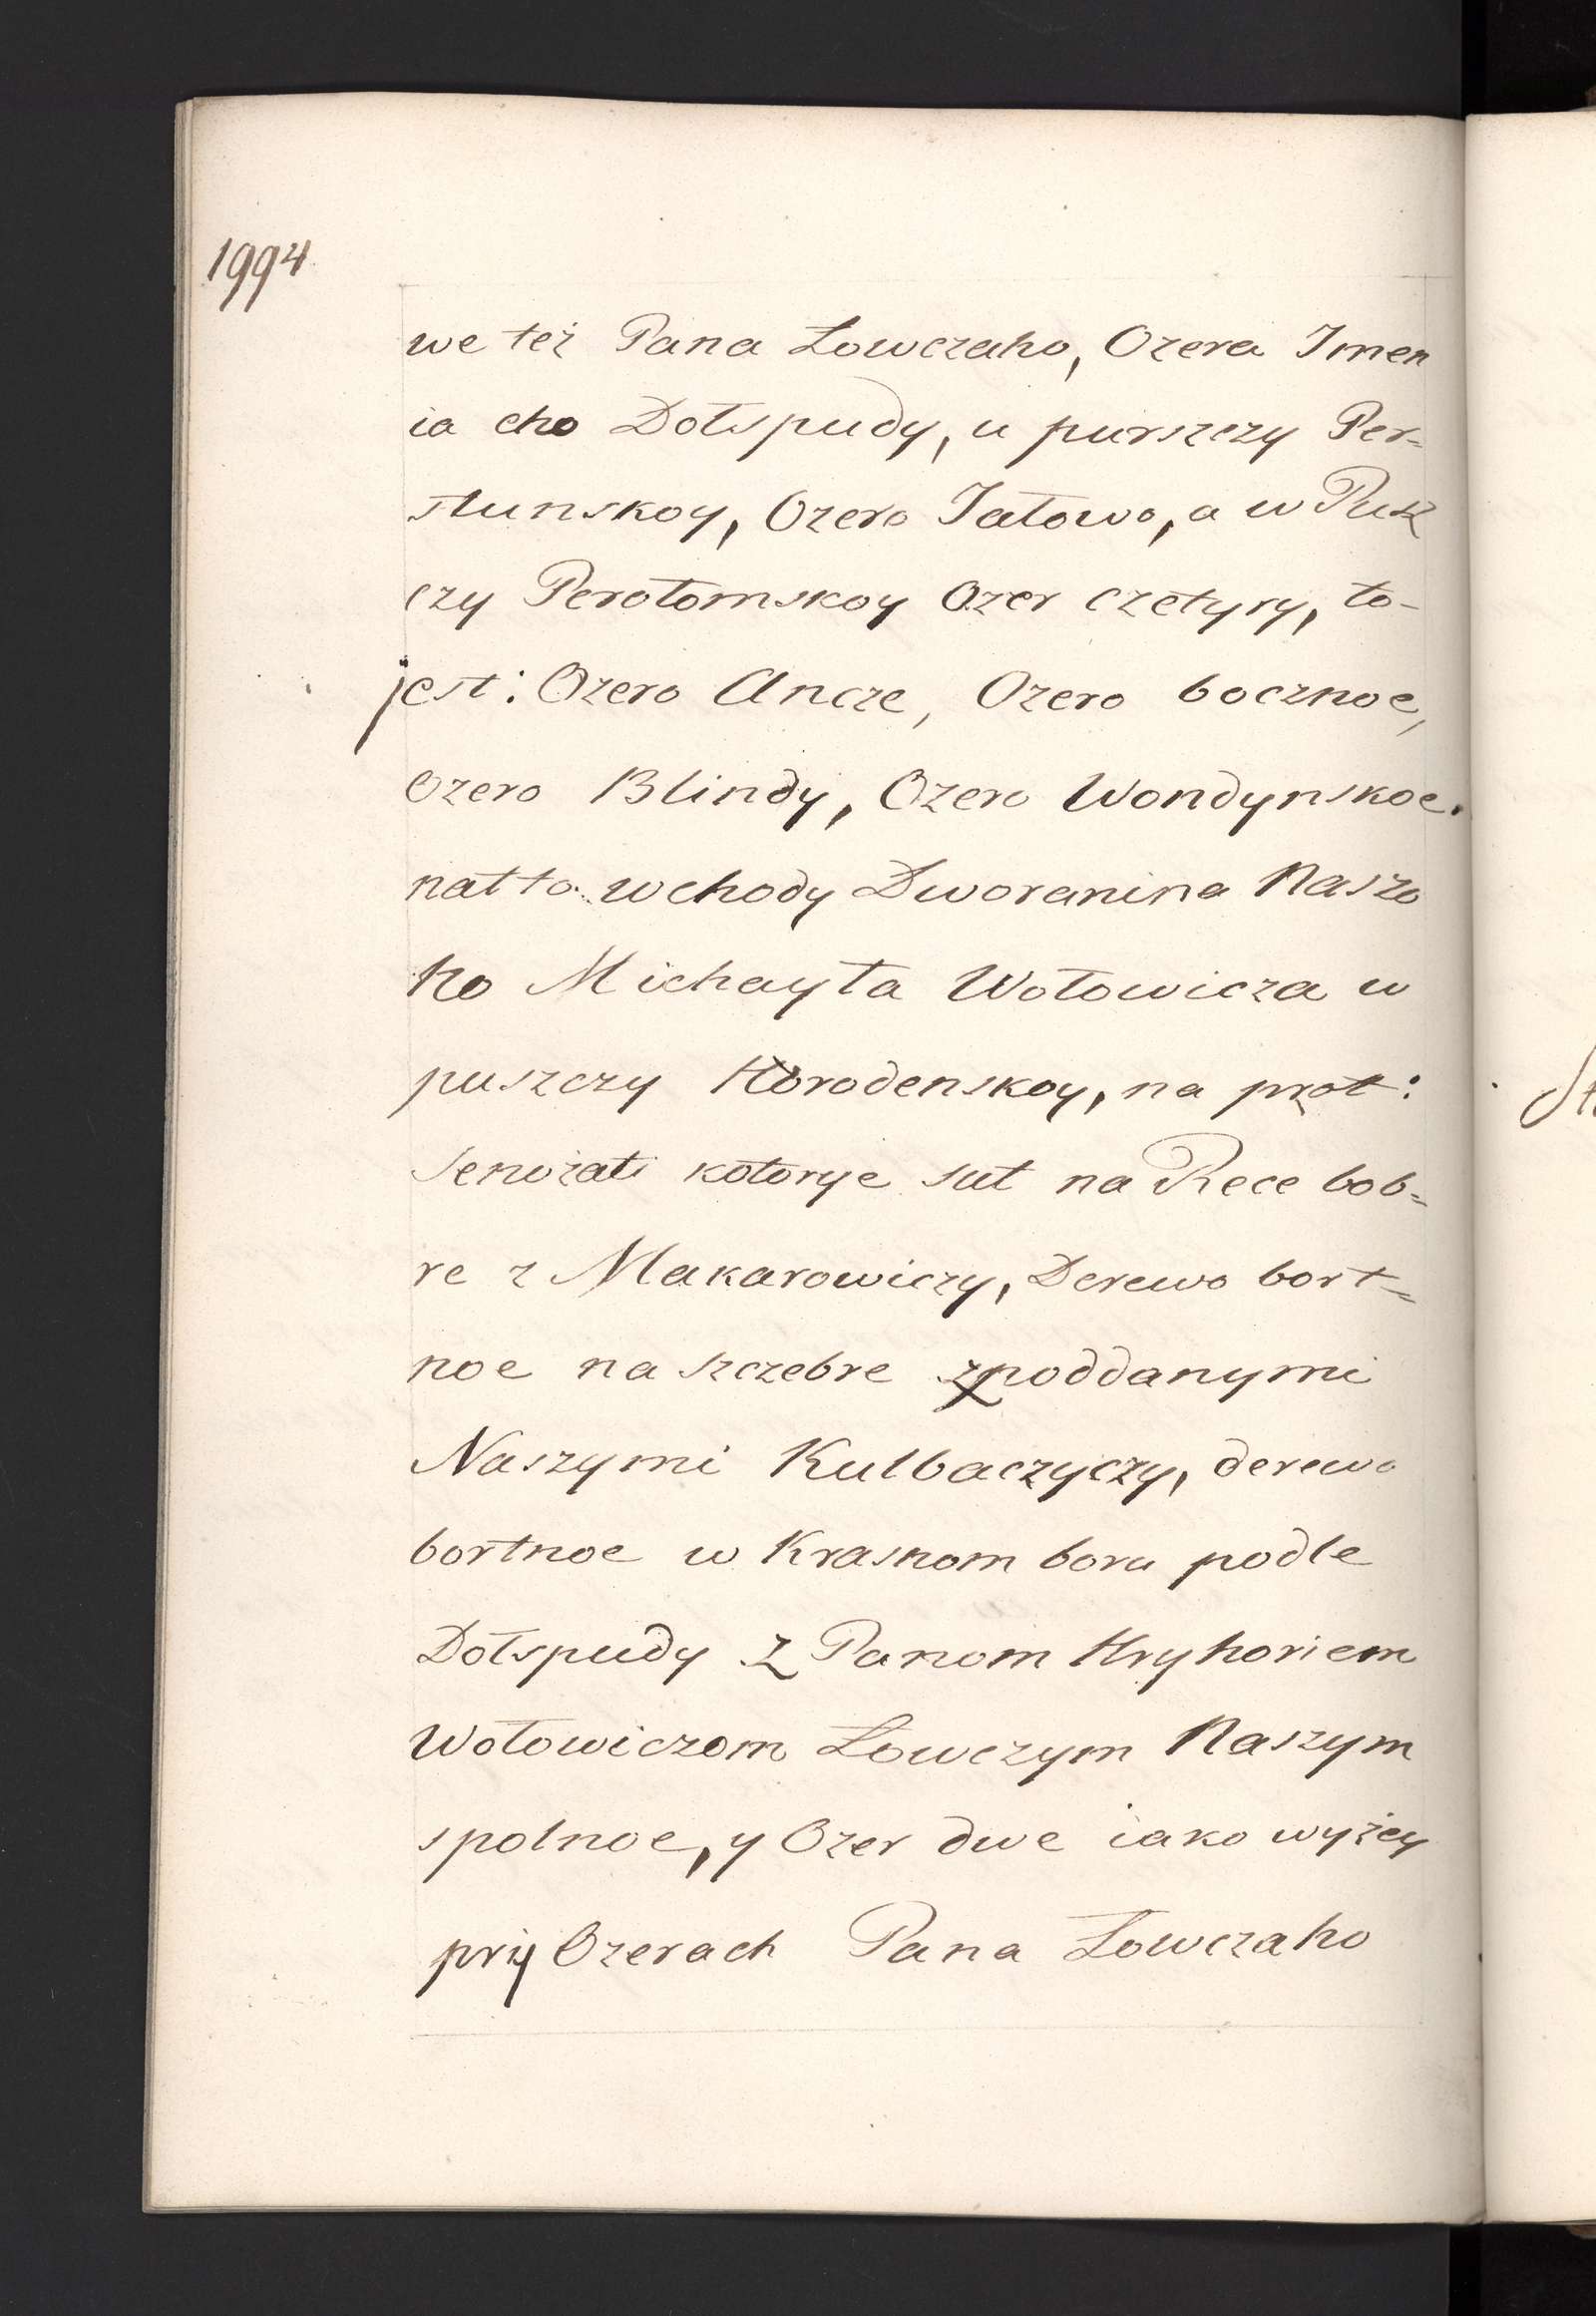 1994
we też Pana Łowczaho, Ozera Imen
ia cho Dołspudy, u purszczy Per-
stunskoy, Ozero Jatowo, a w Pusz
czy Perołomskoy Ozer czetyry, to-
jest: Ozero Ancze, Ozero bocznoe,
Ozero Blindy, Ozero Wondynskoe.
natto wchody Dworanina Naszo
ho Michayła Wołowicza w
puszczy Horodenskoy, na prot:
Senożati kotorye sut na Rece bob=
re z Makarowiczy, Derewo bort=
noe na szczebre z poddanymi
Naszymi Kulbaczyczy, derewo
bortnoe w Krasnom boru podle
Dołspudy z Panom Hryhoriem
Wołowiczom Łowczym Naszym
spolnoe, y Ozer dwe iako wyżey
pry Ozerach Pana Łowczaho